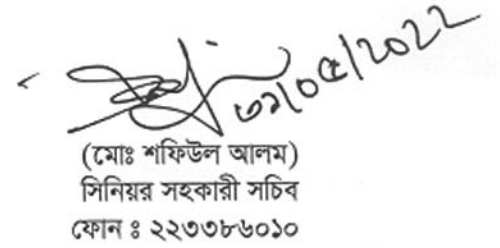 ৩১/০৫/2022
(মোঃ শফিউল আলম)
সিনিয়র সহকারী সচিব
ফোন ঃ ২২৩৩৮৬০১০